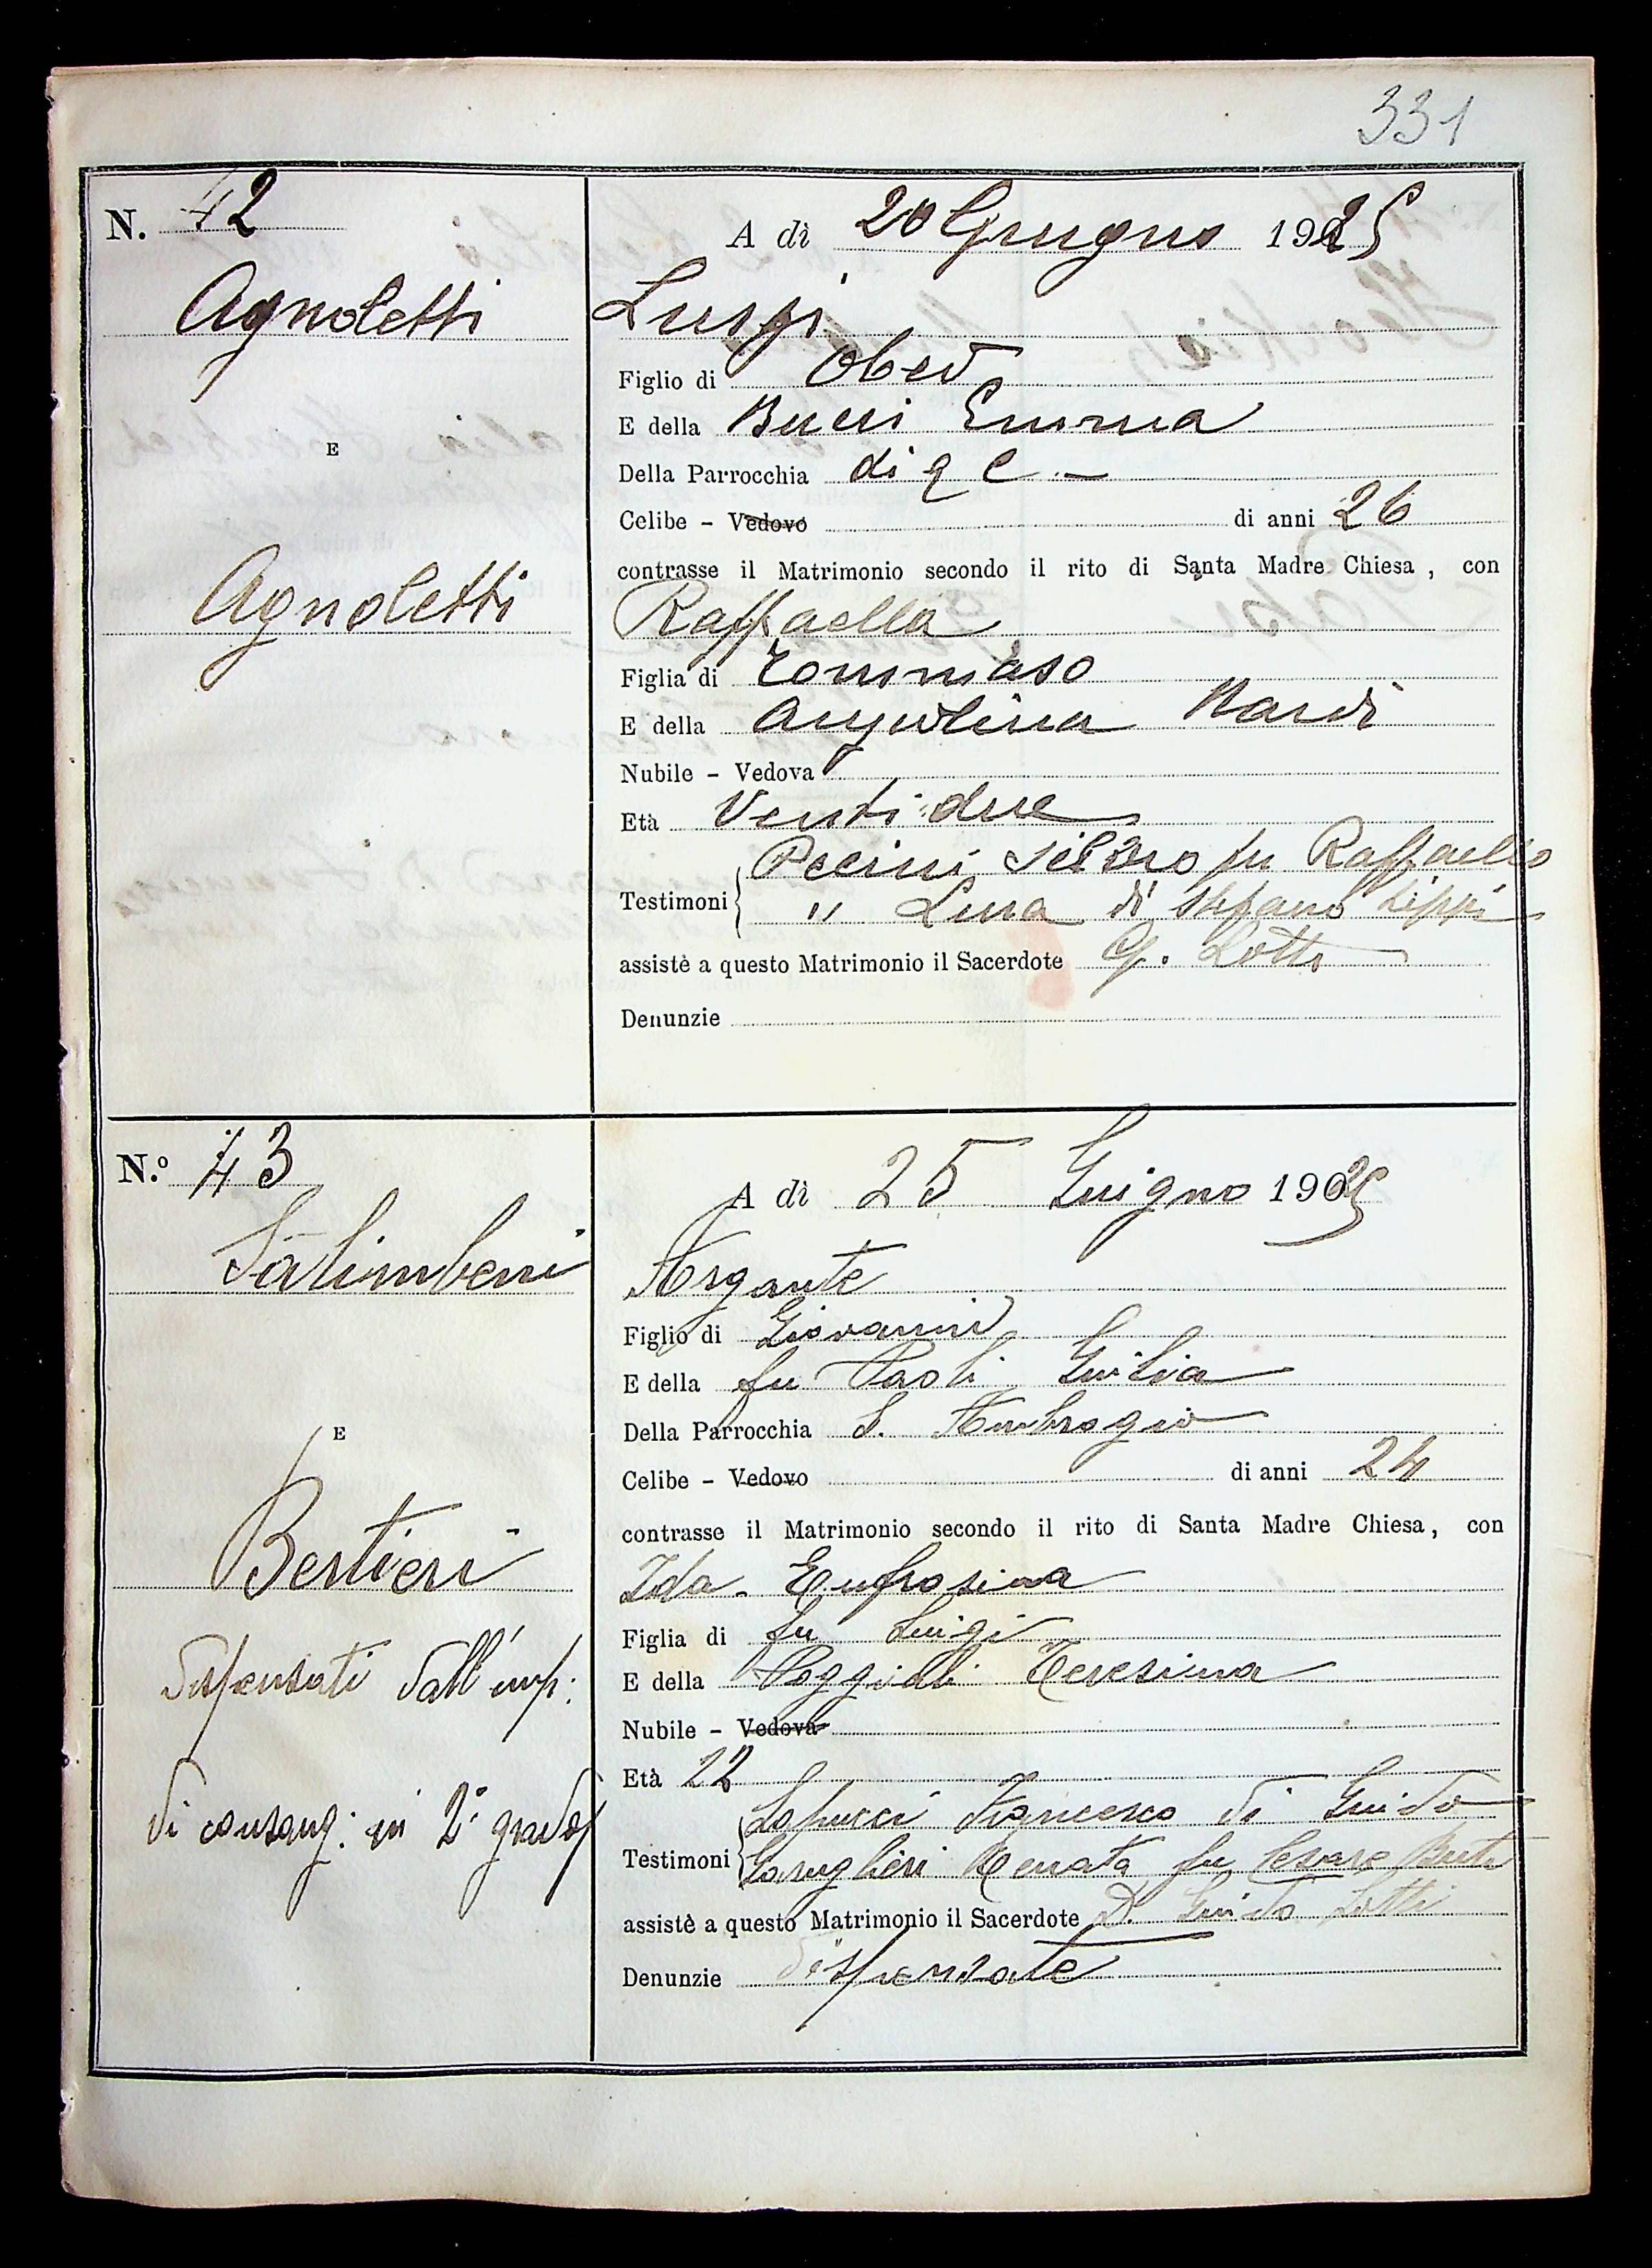 331
N. 42
A dì 20 Giugno 1925
Agnoletti
Luigi
Figlio di Obed
E della Bucci Emma
E
Della Parrocchia di q c -
Celibe - Vedovo di anni 26
contrasse il Matrimonio secondo il rito di Santa Madre Chiesa, con
Agnoletti
Raffaella
Figlia di Tommaso
E della Angiolina Nardi
Nubile - Vedova
Età Ventidue
Testimoni
Pecini fu Raffaello
" Lina di Stefano Lippi
assistè a questo Matrimonio il Sacerdote G. Lotti
Denunzie
N.º 43
A dì 25 Giugno 1925
Salimbeni
Argante
Figlio di Giovanni
E della fu Paoli Giulia
Della Parrocchia S. Ambrogio
E
Celibe - Vedovo di anni 24
contrasse il Matrimonio secondo il rito di Santa Madre Chiesa, con
Bertieri
Ida - Eufrosina
Figlia di fu Luigi
dispensati dall'imp:
E della Poggiali Teresina
Nubile - Vedova
Età 22
di consang: in 2º grado
Testimoni
Lapucci Francesco di Guido
Renata fu Cesare
assistè a questo Matrimonio il Sacerdote D. Guido Lotti
Denunzie dispensate